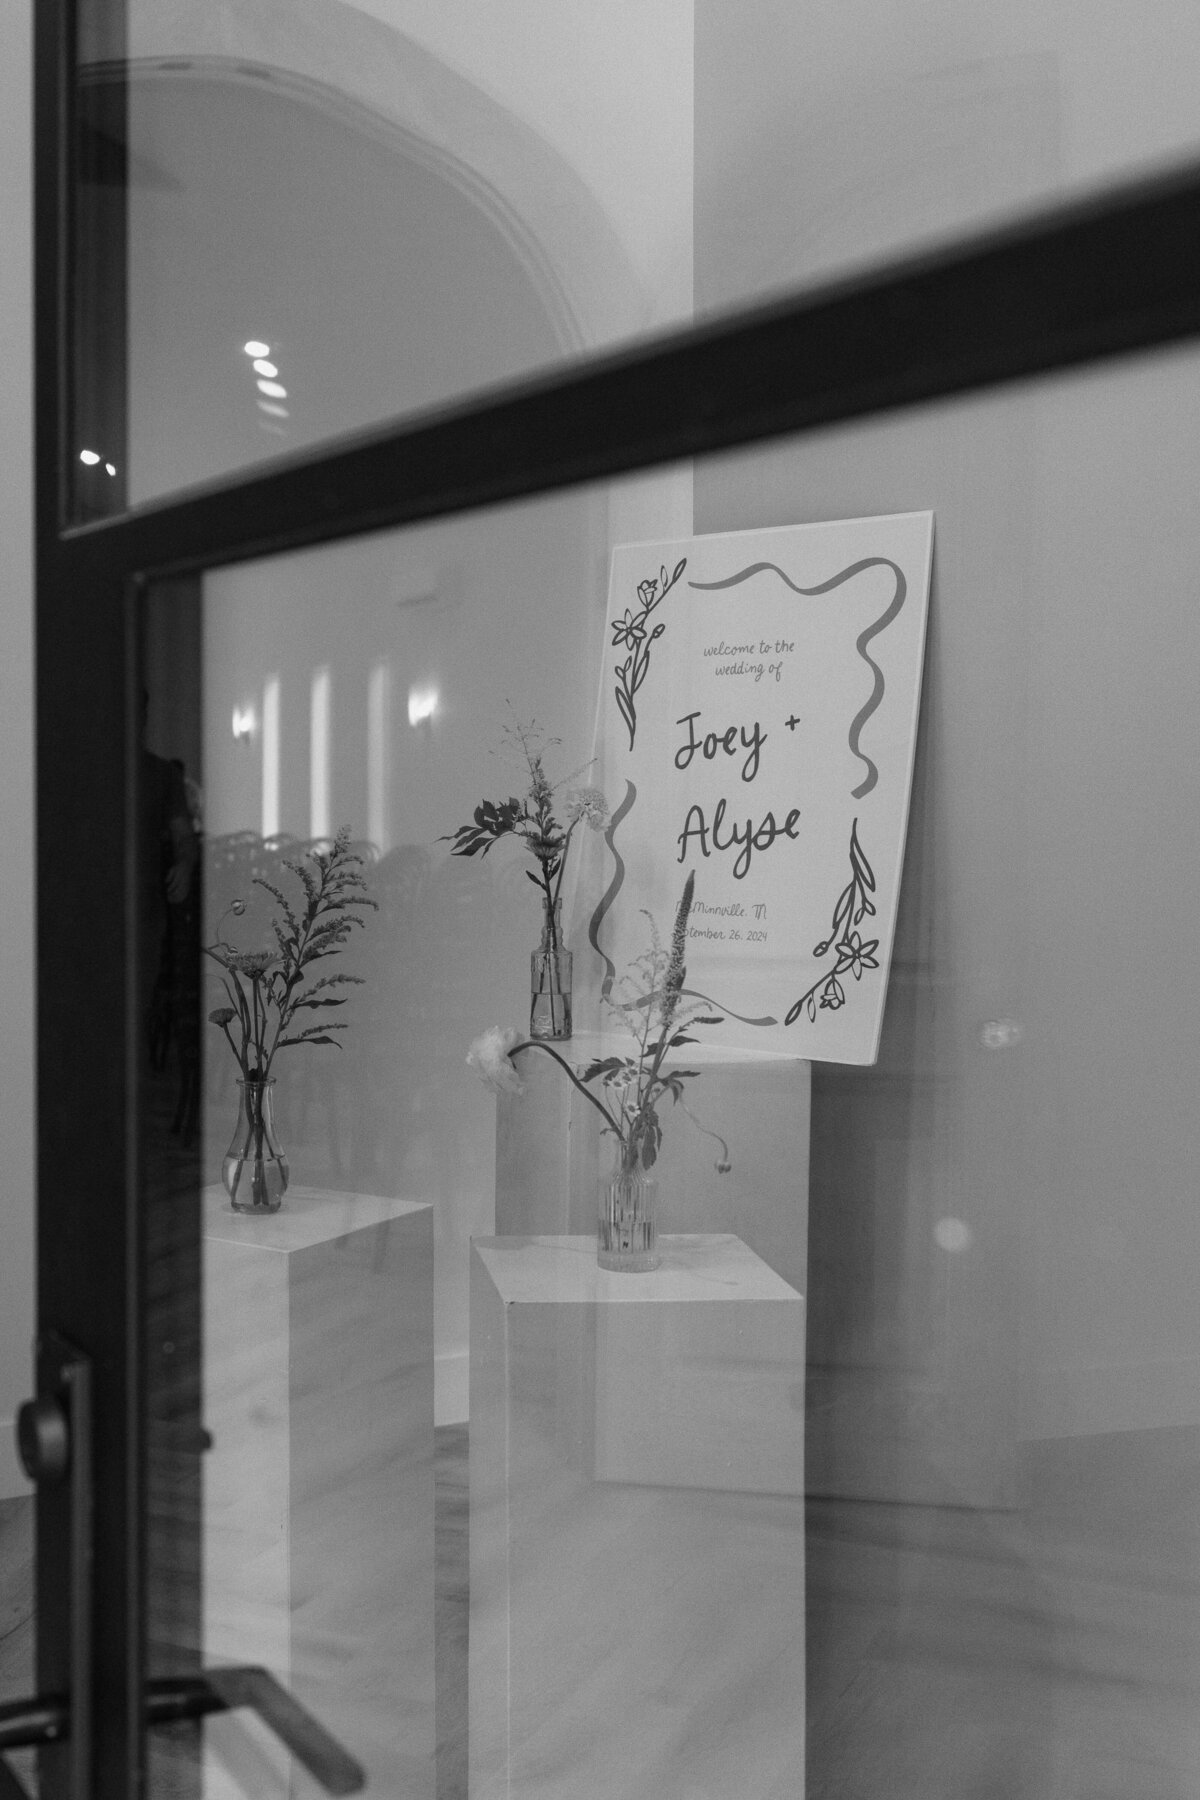 welcome to the
wedding of
Joey +
Alyse
McMinnville, TN
ptember 26, 2024